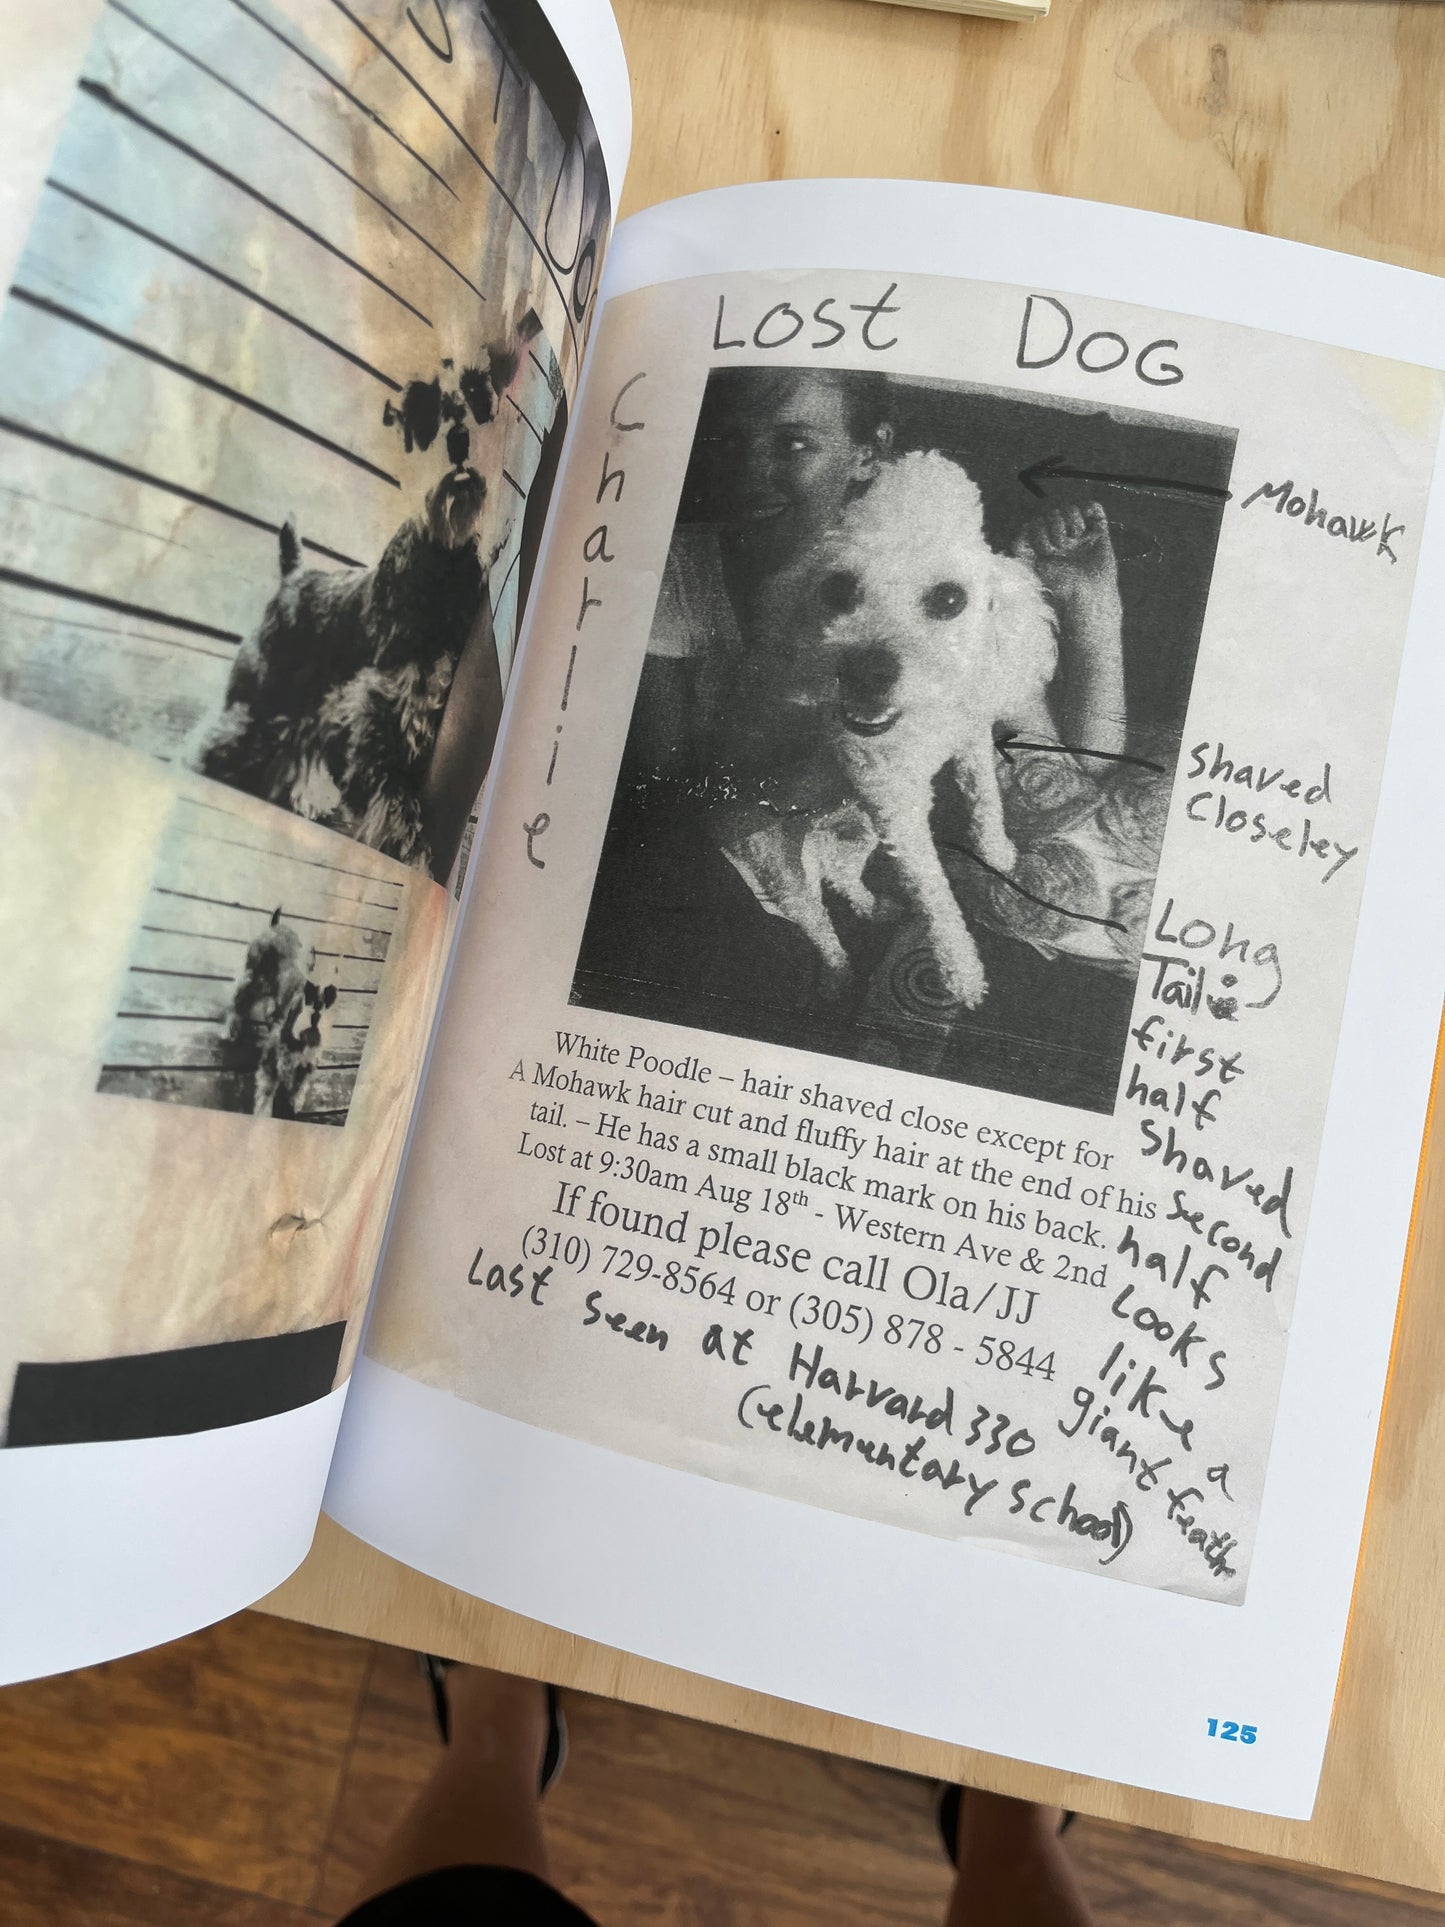 Lost Dog
Charlie
Mohawk
Shaved
Closeley
Long
Tail
first
half
Shaved
second
half
Looks
like a
giant feath
White Poodle – hair shaved close except for
A Mohawk hair cut and fluffy hair at the end of his
tail. – He has a small black mark on his back.
Lost at 9:30am Aug 18th - Western Ave & 2nd
If found please call Ola/JJ
(310) 729-8564 or (305) 878 - 5844
Last seen at Harvard 330
(elementary school)
125